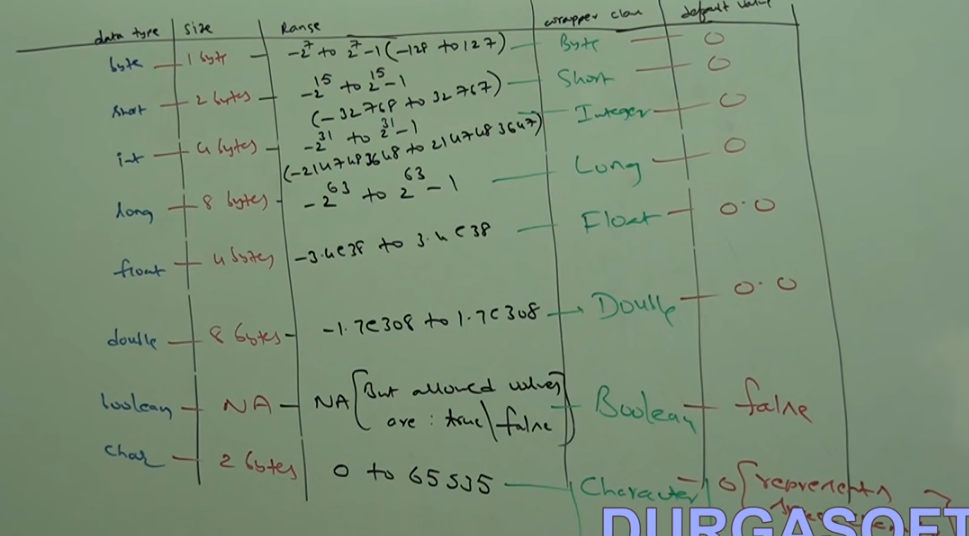 data type size Range wrapper class default value
byte 1 byte -2^7 to 2^7-1 (-128 to 127) Byte 0
short 2 bytes -2^15 to 2^15-1 Short 0
(-32768 to 32767)
int 4 bytes -2^31 to 2^31-1 Integer 0
(-2147483648 to 2147483647)
long 8 bytes -2^63 to 2^63-1 Long 0
float 4 bytes -3.4e38 to 3.4e38 Float 0.0
double 8 bytes -1.7e308 to 1.7e308 Double 0.0
boolean NA NA [But allowed values Boolean false
are : true|false]
char 2 bytes 0 to 65535 Character 0 [represents
DURGASOFT